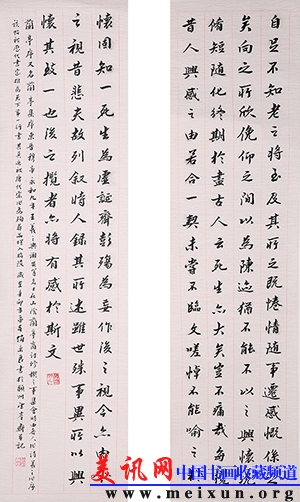 自足不知老之將至及其所之既惓情隨事遷感慨係之
矣向之所欣俛仰之間以為陳迹猶不能不以之興懷況
脩短隨化終期於盡古人云死生亦大矣豈不痛哉每攬
昔人興感之由若合一契未嘗不臨文嗟悼不能喻之於
懷固知一死生為虛誕齊彭殤為妄作後之視今亦由今
之視昔悲夫故列敘時人錄其所述雖世殊事異所以興
懷其致一也後之攬者亦將有感於斯文
蘭亭序又名蘭亭集序東晉穆帝永和九年王羲之與謝安等
美讯网
中国书画收藏频道
www.meixun.org